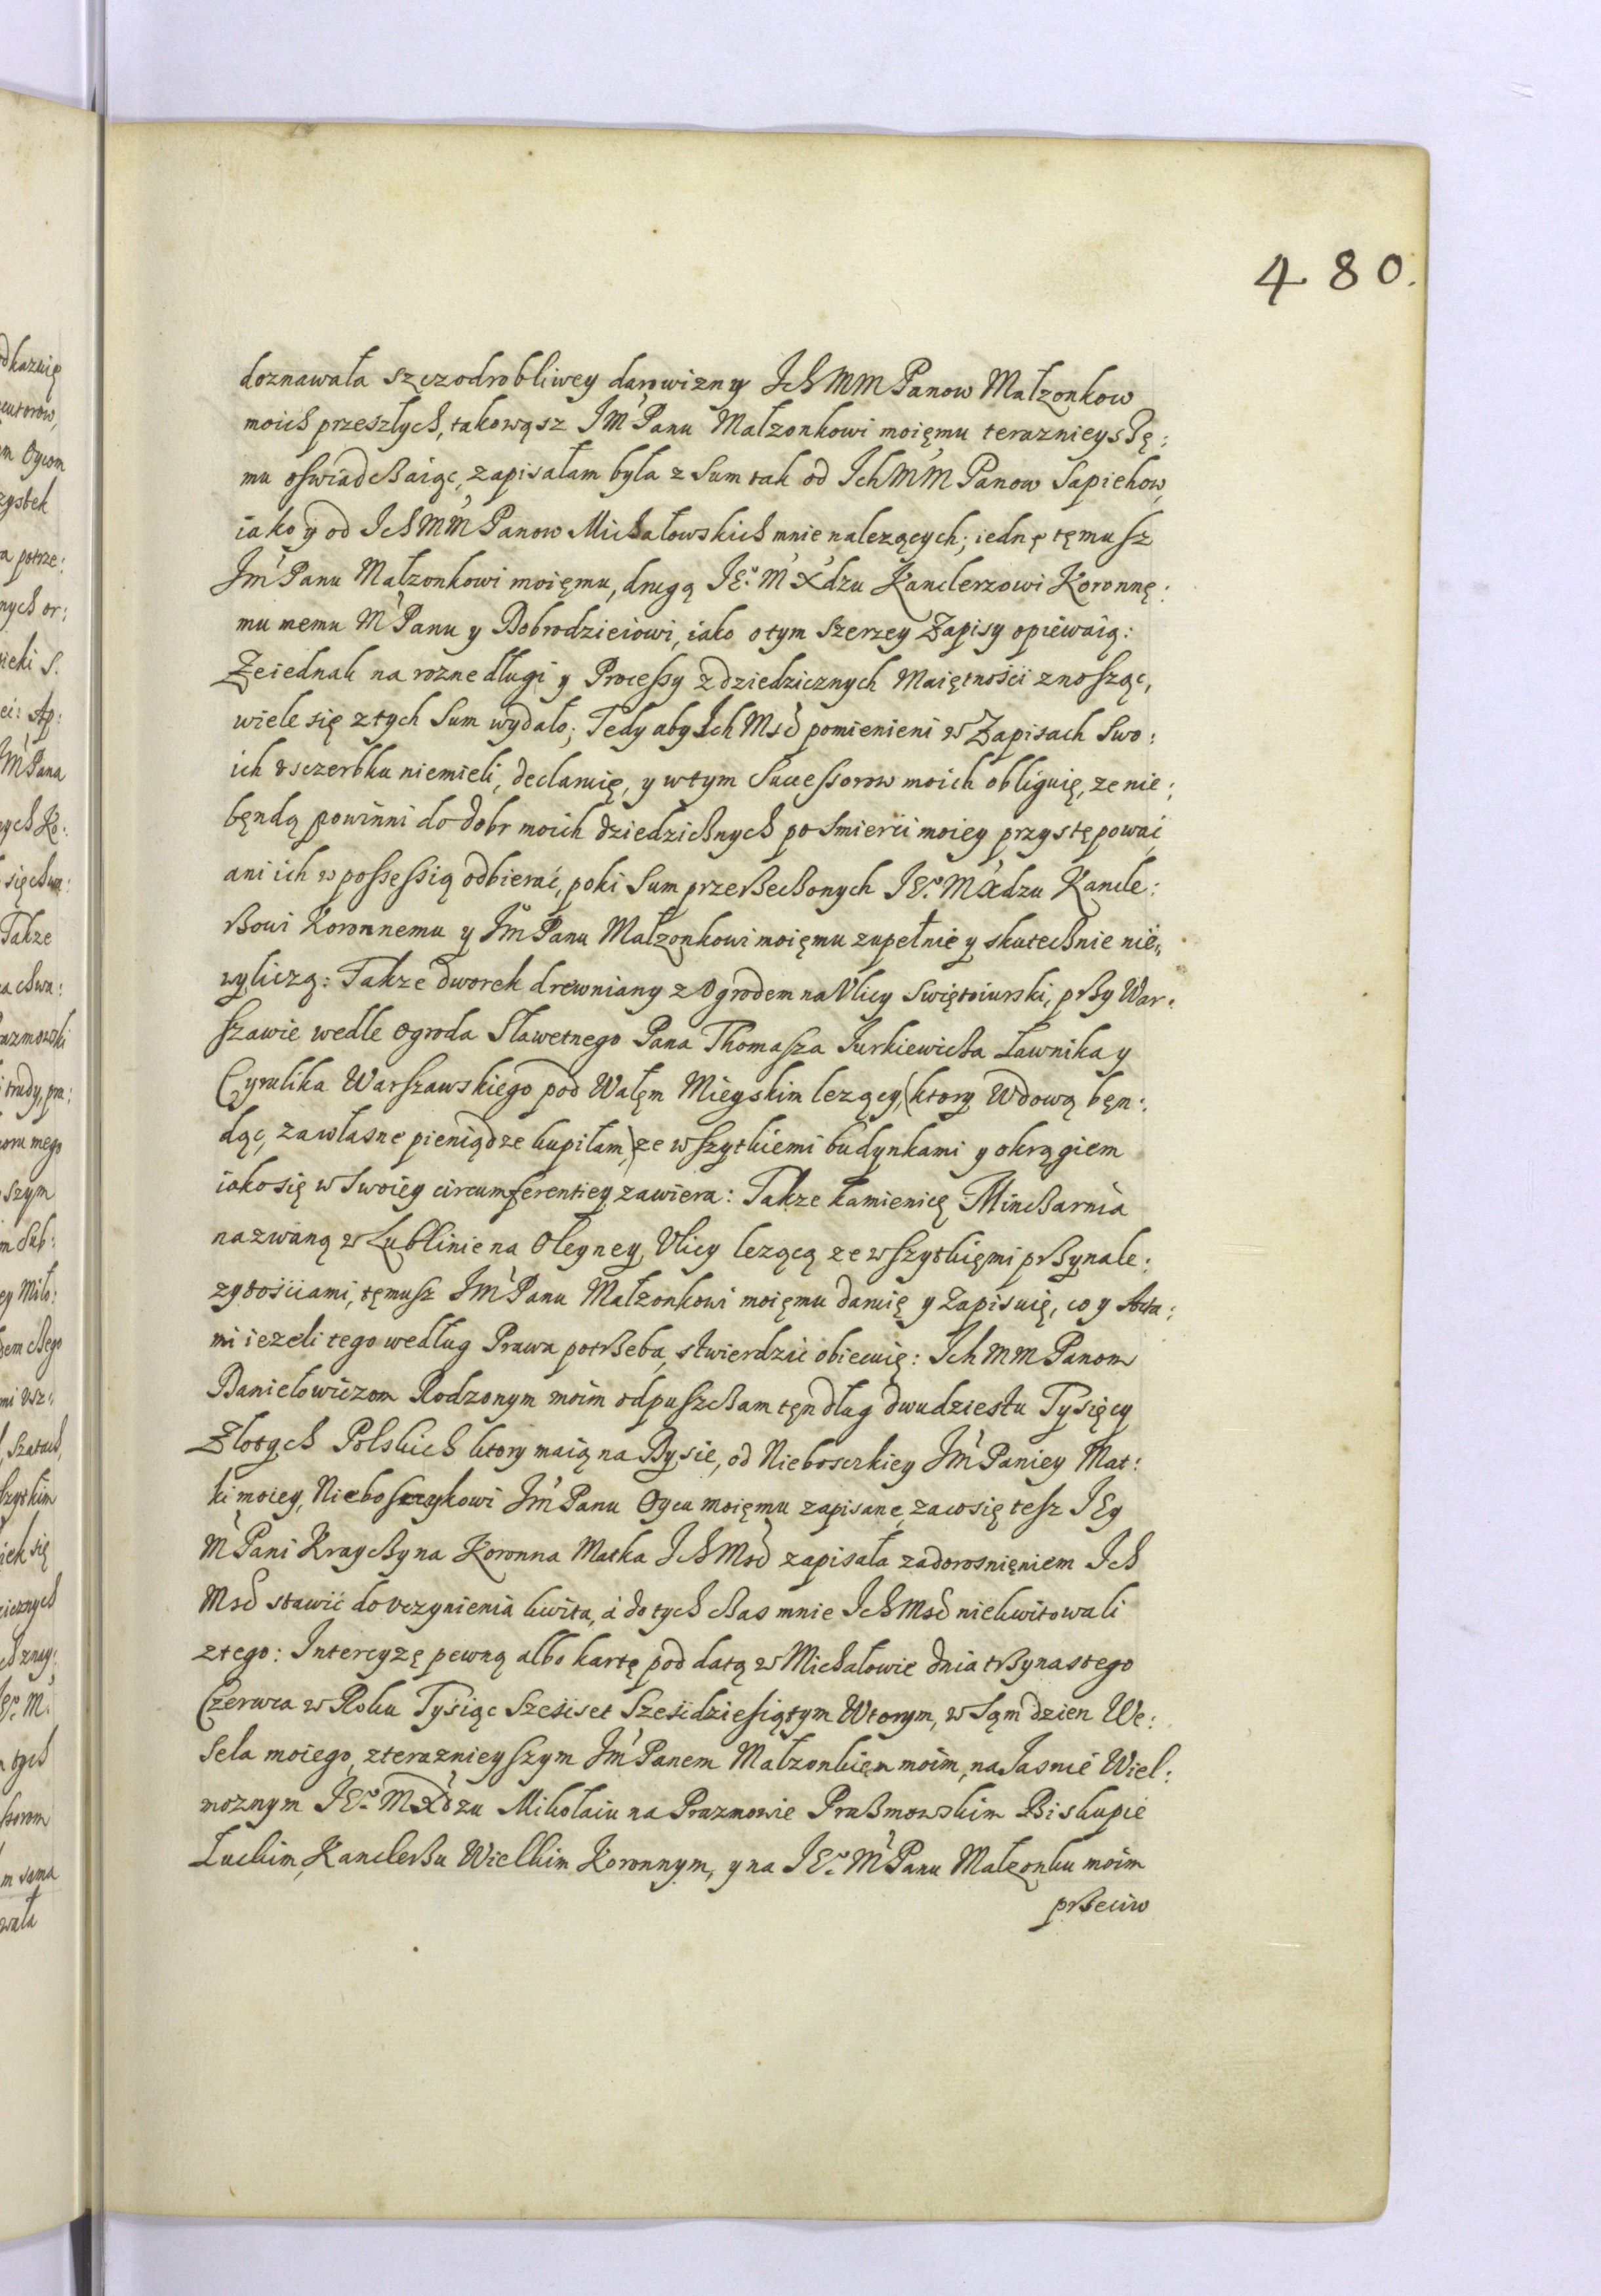 480.
doznawała szczodrobliwey darowizny Ich MM Panow Małzonkow
moich przeszłych, takowąsz Im Panu Małzonkowi moięmu teraznieyszę:
mu oswiadczaiąc, zapisałam była z Sum tak od Ich MM Panow Sapiehow,
iako y od Ich MM Panow Michałowskich mnie nalezących; iednę tęmusz
Im Panu Małzonkowi moięmu, drugą IEo M Xdzu Kanclerzowi Koronnę:
mu memu M Panu y Dobrodzieiowi, iako o tym szerzey Zapisy opiewaią:
Ze iednak na rozne długi y Processy z dziedzicznych Maiętności znosząc,
wiele się z tych Sum wydało; Tedy aby Ich Msć pomienieni w Zapisach Swo:
ich vsczerbku niemieli, declaruię, y w tym Successorow moich obliguię, ze nie:
będą powinni do dobr moich dziedzicznych po Smierci moiey przystępować,
ani ich w possessią odbierać, poki Sum przerzeczonych IEo M Xdzu Kancle:
rzowi Koronnemu y Im Panu Małzonkowi moięmu zupełnie y skutecznie nie:
wyliczą: Takze dworek drewniany z Ogrodem na Vlicy Swiętoiurski, przy War:
szawie wedle Ogroda Sławetnego Pana Thomasza Iurkiewicza Ławnika y
Cyrulika Warszawskiego pod Wałęm Mieyskim lezący, (ktory Wdową bęn:
dąc, za własne pieniądze kupiłam,) ze wszytkiemi budynkami y okrągiem
iako się w Swoiey circumferentiey zawiera: Takze kamienicę Minczarnia
nazwaną w Lublinie na Oleyney Vlicy lezącą ze wszytkięmi przynale:
zytościami, tęmusz Im Panu Małzonkowi moięmu daruię y Zapisuię, co y Acta:
mi iezeli tego według Prawa potrzeba, stwierdzić obiecuię: Ich MM Panom
Daniełowiczom Rodzonym moim odpuszczam tęn dług dwudziestu Tysięcy
Złotych Polskich ktory maią na Bysie, od Nieboszczkiey Im Paniey Mat:
ki moiey, Nieboszczykowi Im Panu Oycu moięmu zapisane, za co się tesz IEy
M Pani Krayczyna Koronna Matka Ich Msć zapisała za dorosnięniem Ich
Msć stawić do vczynienia kwitu, á do tych czas mnie Ich Msć niekwitowali
z tego: Intercyzę pewną albo kartę pod datą w Michałowie dnia trzynastego
Czerwca w Roku Tysiąc Sześćset Sześćdziesiątym Wtorym, w Sąm dzien We:
sela moiego, z teraznieyszym Im Panem Małzonkięm moim, na Iasnie Wiel:
moznym IEo M Xdzu Mikołaiu na Prazmowie Prazmowskim Biskupie
Łuckim, Kanclerzu Wielkim Koronnym, y na IEo M Panu Małzonku moim
przeciw